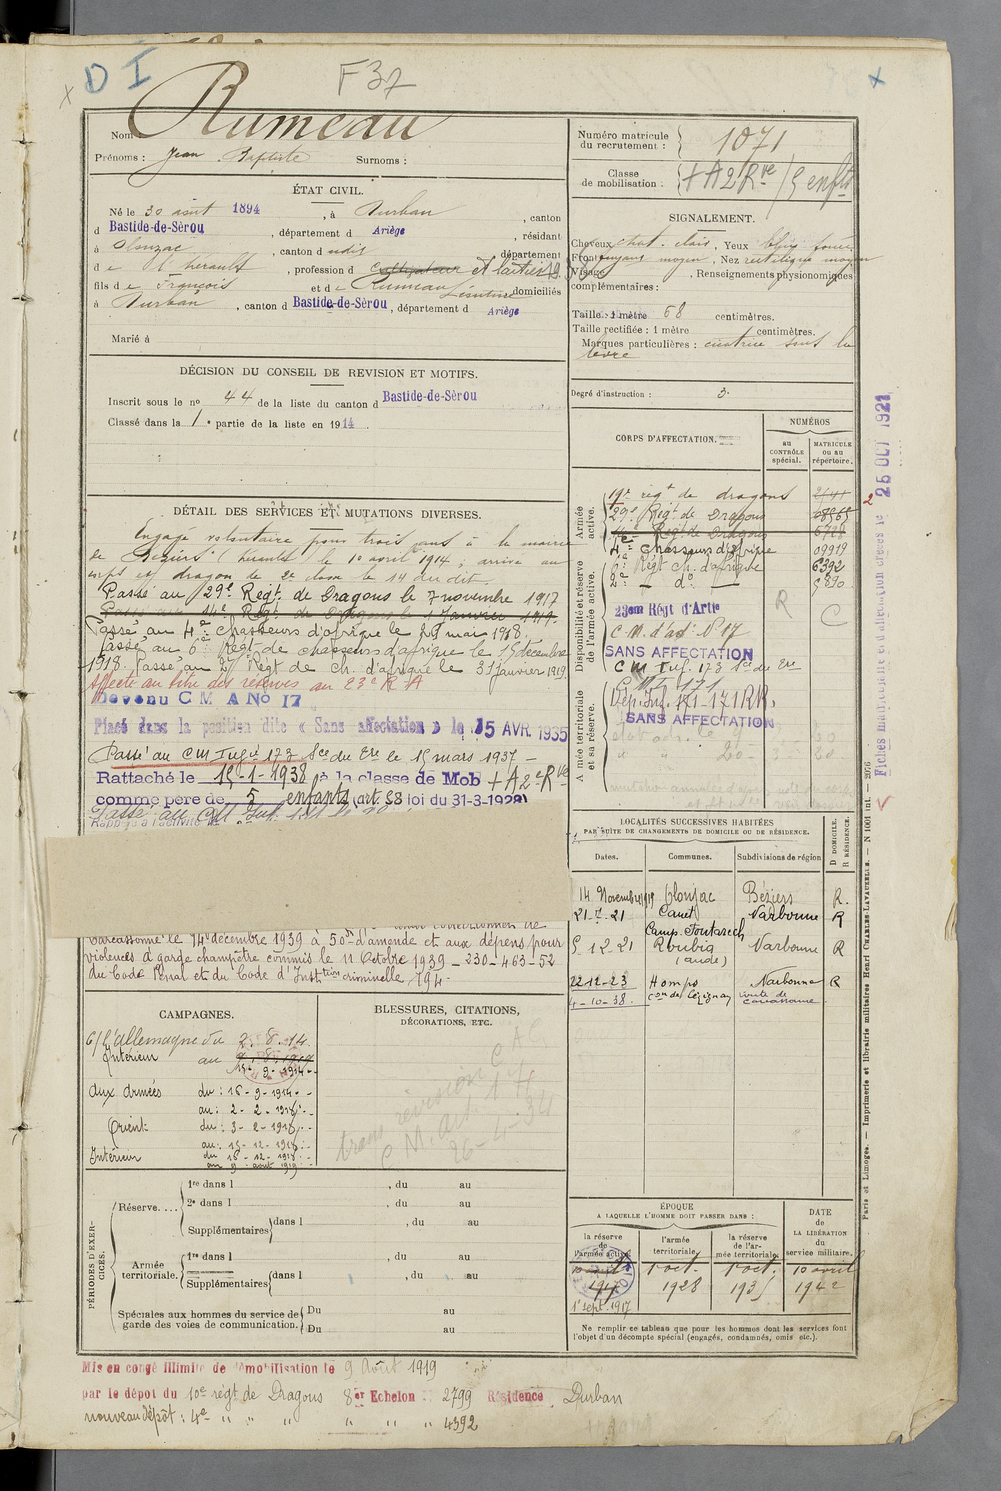 D I
F 37
Nom Rumeau
Prénoms : Jean Baptiste Surnoms :
Numéro matricule du recrutement : 1071
Classe de mobilisation : + A 2 Rve / 5 enfts
ÉTAT CIVIL.
Né le 30 août 1894, à Durban, canton
d Bastide-de-Sèrou, département d Ariège, résidant
à Olonzac, canton d udit, département
d e l'hérault, profession d cultivateur et laitier
fils d e François et d e Rumeau Léontine domiciliés
à Durban, canton d Bastide-de-Sèrou, département d Ariège
Marié à
SIGNALEMENT.
Cheveux chat. clair, Yeux bleu foncé
Front moyen, Nez rectiligne moyen
Visage, Renseignements physionomiques
complémentaires :
Taille : 1 mètre 68 centimètres.
Taille rectifiée : 1 mètre centimètres.
Marques particulières : cicatrice sous la
lèvre
Degré d'instruction : 3.
DÉCISION DU CONSEIL DE REVISION ET MOTIFS.
Inscrit sous le no 44 de la liste du canton d Bastide-de-Sèrou
Classé dans la 1e partie de la liste en 1914.
DÉTAIL DES SERVICES ET MUTATIONS DIVERSES.
Engagé volontaire pour trois ans à la mairie
de Béziers (hérault) le 10 avril 1914 ; arrivé au
corps et dragon de 2e classe le 14 du dit.
Passé au 29e Régt. de Dragons le 7 novembre 1917
Passé au 14e Régt. de Dragons le 1 Janvier 1919.
Passé au 4e chasseurs d'afrique le 29 mai 1918.
Passé au 6e Régt. de chasseurs d'afrique le 15 décembre
1918. Passé au 2e Régt de ch. d'afrique le 31 Janvier 1919.
Affecté au titre des réserves au 23e R A
Devenu C M A No 17
Placé dans la position dite « Sans affectation » le 15 AVR. 1935
Passé au CM Infie 173 Sce du Ere le 15 mars 1937 -
Rattaché le 15-1-1938 à la classe de Mob + A 2e Rve
comme père de 5 enfants (art. 58 loi du 31-3-1928)
Carcassonne le 14 décembre 1939 à 50 frs d'amende et aux dépens pour
violences à garde champêtre commis le 11 Octobre 1939 - 230-463-52
du Code Pénal et du Code d'Insttion criminelle 194-
CORPS D'AFFECTATION.
NUMÉROS
au CONTRÔLE spécial.
MATRICULE ou au répertoire.
Armée active.
19e régt de dragons
29e Régt de Dragons
14e Régt de Dragons
4e Chasseurs d'afrique 09919
6e Régt Ch. d'afrique 6392
2e - do -
Disponibilité et réserve de l'armée active.
23em Régt d'Artie
C.M. d'art No 17
SANS AFFECTATION
C M Inf. 173 Sce du Ere
Armée territoriale et sa réserve.
C M I 171
Dép. Inf. 171-171 RR.
SANS AFFECTATION
R
C
25 OCT 1921
LOCALITÉS SUCCESSIVES HABITÉES
PAR SUITE DE CHANGEMENTS DE DOMICILE OU DE RÉSIDENCE.
Dates. Communes. Subdivisions de région
D DOMICILE. R RÉSIDENCE.
14 Novembre 1919 Olonzac Béziers R.
21-7-21 Canet Narbonne R
Camp. Fontarech
5 12 21 Roubia (aude) Narbonne R
22-12-23 Homps Narbonne R
4-10-38. con de Lézignan
CAMPAGNES.
C/ l'allemagne du 2. 8. 14
Intérieur au 9. 8. 1919
15 - 9 - 1914
Aux armées du : 16 - 9 - 1914
au : 2 - 2 - 1918
Orient du : 3 - 2 - 1918
au : 15 - 12 - 1918
Intérieur du 16 - 12 - 1918
au 9 août 1919
BLESSURES, CITATIONS,
DÉCORATIONS, ETC.
26-4-34
PÉRIODES D'EXERCICES.
Réserve....
1re dans l , du au
2e dans l , du au
Supplémentaires dans l , du au
Armée territoriale.
1re dans l , du au
Supplémentaires dans l , du au
Spéciales aux hommes du service de
garde des voies de communication.
Du au
Du au
ÉPOQUE
A LAQUELLE L'HOMME DOIT PASSER DANS :
la réserve de l'armée active
l'armée territoriale.
la réserve de l'armée territoriale.
DATE de LA LIBÉRATION du service militaire.
10 août 1917 1 oct. 1928 1 oct. 1935 10 avril 1942
1 sept. 1917
Ne remplir ce tableau que pour les hommes dont les services font
l'objet d'un décompte spécial (engagés, condamnés, omis etc.).
Paris et Limoges. — Imprimerie et librairie militaires Henri CHARLES-LAVAUZELLE. — N 1001 int. — 2076
Mis en congé illimité de démobilisation le 9 Août 1919
par le dépôt du 10e régt de Dragons 8er Echelon 2799 Résidence Durban
nouveau dépôt : 4e " " " " " " 4392